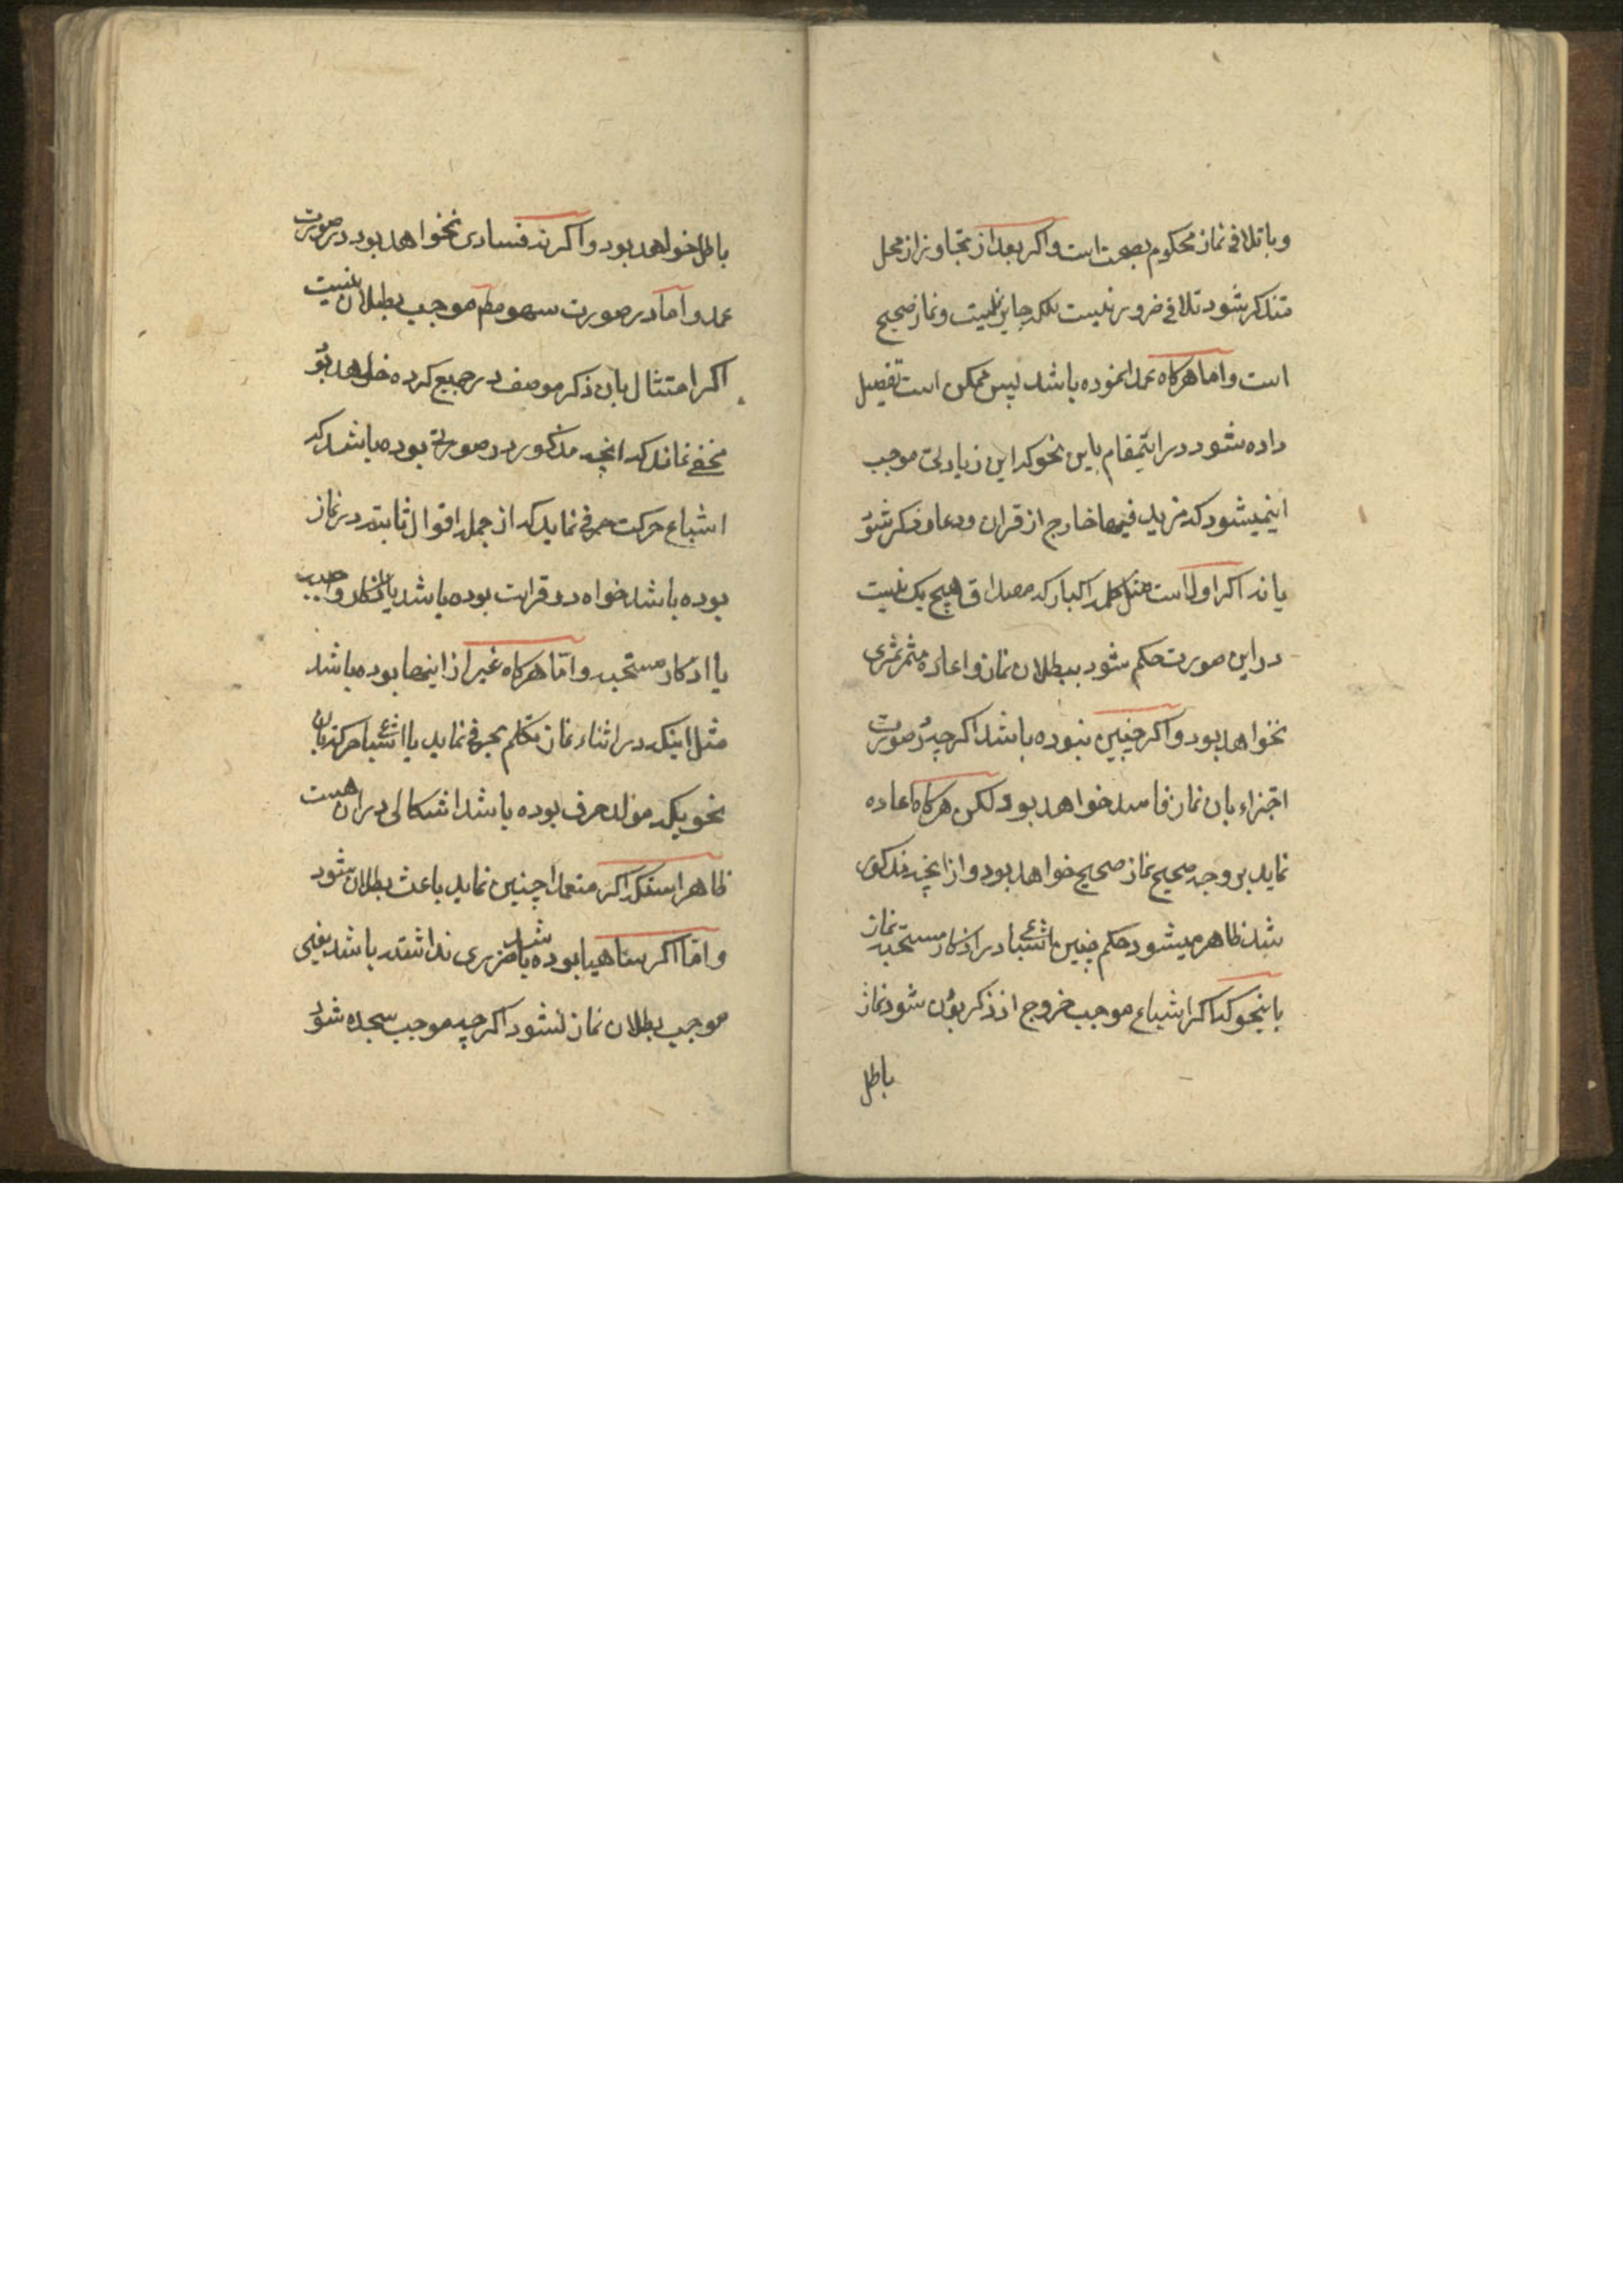 و با تلافی نماز محکوم بصحت است و اکر بعد از تجاوز از محل
متذکر شود تلافی ضرور نیست بلکه جایز نیست و نماز صحیح
است و اما هرکاه عمدا نموده باشد پس ممکن است تفصیل
داده شود در اینمقام باین نحو که این زیادتی موجب
اینمیشود که مزید فیها خارج از قران و دعا و ذکر شود
یا نه اکر اول است مثل کلمه اکبار که مصداق هیچ یک نیست
در این صورت حکم شود ببطلان نماز و اعاده مثمر ثمری
نخواهد بود و اکر چنین نبوده باشد اکر چه در صورت
اجتزاء بان نماز فاسد خواهد بود لکن هرکاه اعاده
نماید بر وجه صحیح نماز صحیح خواهد بود و از انچه مذکور
شد ظاهر میشود حکم چنین اشباع در اذکار مستحبه نماز
باینحو که اکر اشباع موجب خروج از ذکر بودن شود نماز
باطل
باطل خواهد بود و اکر نه فسادی نخواهد بود در صورت
عمد و اما در صورت سهو مطم موجب بطلان نیست
اکر امتثال بان ذکر موصف در جمیع کرده خواهد بود
مخفی نماند که انچه مذکور در صورتی بوده باشد که
اشباع حرکت حرفی نماید که از جمله اقوال ثابته در نماز
بوده باشد خواه در قرائت بوده باشد یا اذکار واجبه
یا اذکار مستحبه و اما هرکاه غیر از اینها بوده باشد
مثل اینکه در اثناء نماز تکلم بحرفی نماید یا اشباع حرکت بان
نحویکه مولد حرف بوده باشد اشکالی در ان هست
ظاهر استکه اکر متعمدا چنین نماید باعث بطلان شود
و اما اکر ساهیا بوده باشد ضرری نداشته باشد یعنی
موجب بطلان نماز نشود اکر چه موجب سجده شود